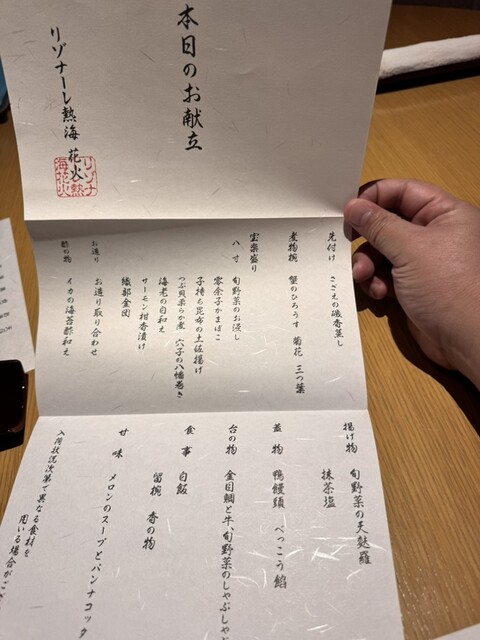 本日のお献立
リゾナーレ熱海 花火
先付け さざえの磯香蒸し
煮物椀 蟹のひろうす 菊花 三つ葉
宝楽盛り
八寸 旬野菜のお浸し
零余子かまぼこ
子持ち昆布の土佐揚げ
つぶ貝柔らか煮 穴子の八幡巻き
海老の白和え
サーモン柑香漬け
織部金団
お造り お造り取り合わせ
酢の物 イカの海苔酢和え
揚げ物 旬野菜の天麩羅
抹茶塩
蓋物 鴨饅頭 べっこう餡
台の物 金目鯛と牛、旬野菜のしゃぶしゃ
食事 白飯
留椀 香の物
甘味 メロンのスープとパンナコッタ
入荷状況次第で異なる食材を
用いる場合がご